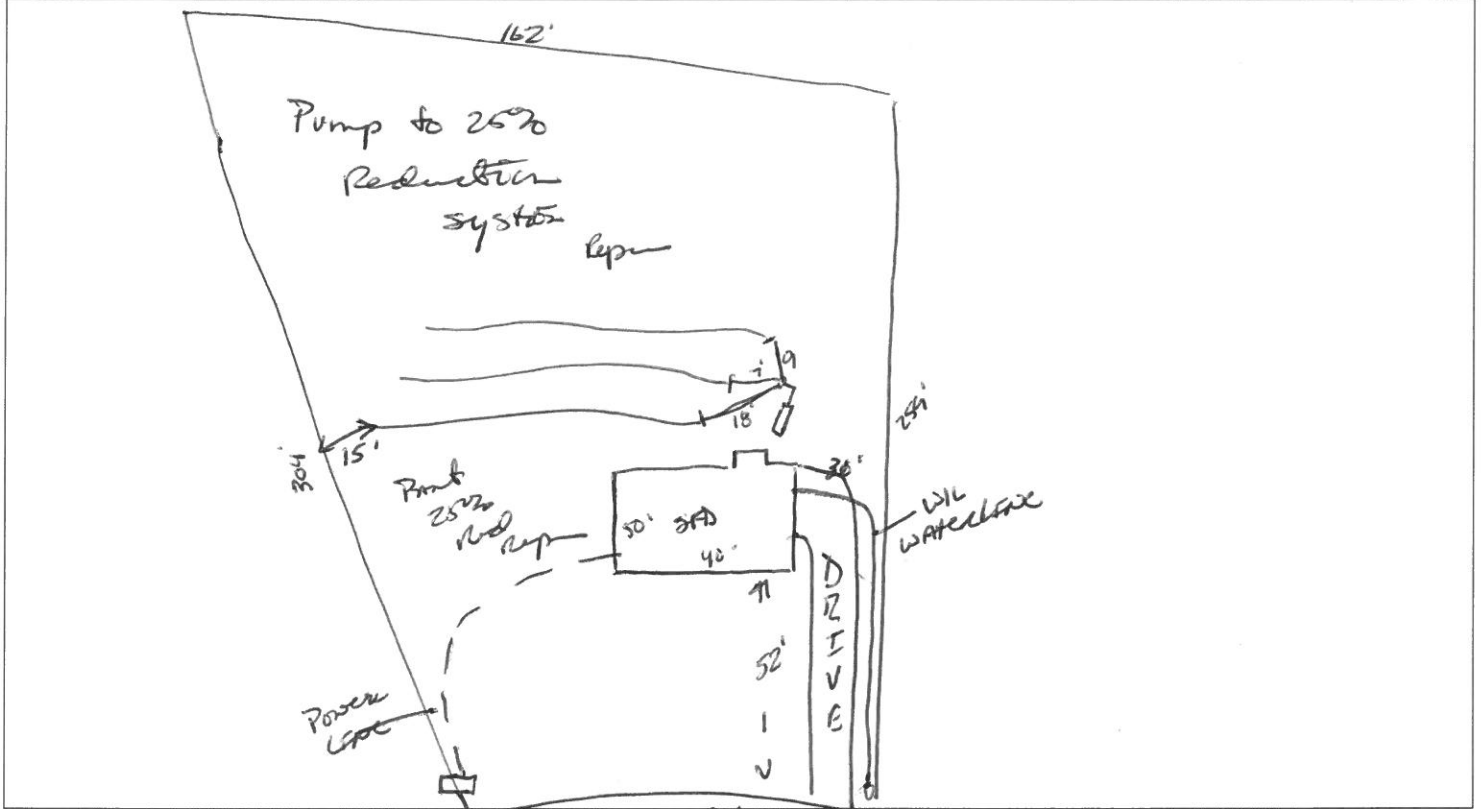 162'
Pump to 25%
Reduction
system
Repair
9
7'
18'
15'
304'
36'
WL
WATERLINE
25%
Red
Repair
50' SFD
40'
DRIVE
52'
Power
LINE